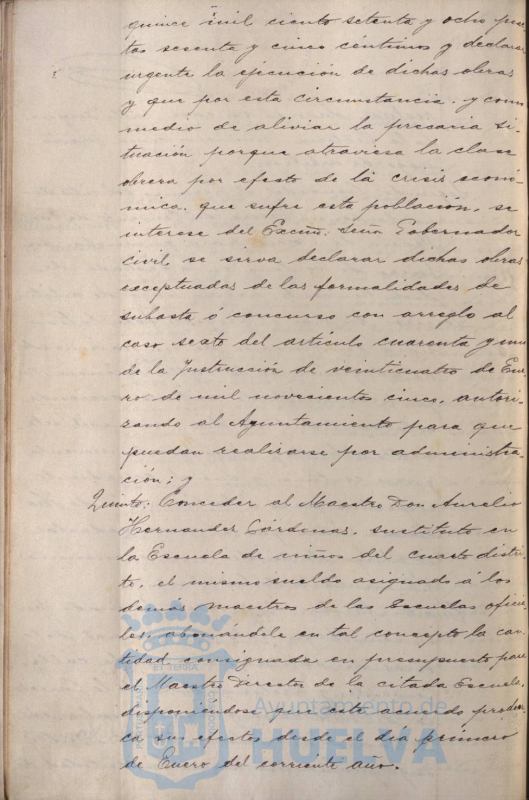 quince mil ciento setenta y ocho pese
tas sesenta y cinco céntimos y declarar
urgente la ejecución de dichas obras
y que por esta circunstancia y como
medio de aliviar la precaria si
tuación porque atraviesa la clase
obrera por efecto de la crisis econó
mica que sufre esta población, se
interese del Excmo. Señor Gobernador
civil se sirva declarar dichas obras
exceptuadas de las formalidades de
subasta ó concurso con arreglo al
caso sexto del artículo cuarenta y uno
de la Instrucción de veinticuatro de Ene
ro de mil novecientos cinco, autori
zando al Ayuntamiento para que
puedan realizarse por administra
ción; y
Quinto: Conceder al Maestro Don Aurelio
Hernandez Cárdenas, sustituto en
la Escuela de niños del cuarto distri
to, el mismo sueldo asignado á los
demas maestros de las Escuelas oficia
les, abonandole en tal concepto la can
tidad consignada en presupuesto para
el Maestro Director de la citada Escuela,
disponiéndose que este acuerdo produz
ca sus efectos desde el dia primero
de Enero del corriente año.
Ayuntamiento de
HUELVA